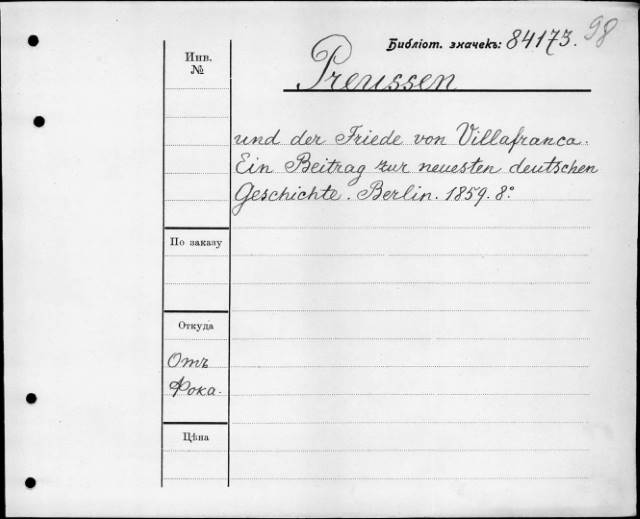 98
Библіот. значекъ: 84173.
Инв.
№
Preussen
und der Friede von Villafranca.
Ein Beitrag zur neuesten deutschen
Geschichte. Berlin. 1859. 8°
По заказу
Откуда
Отъ
Фока.
Цѣна